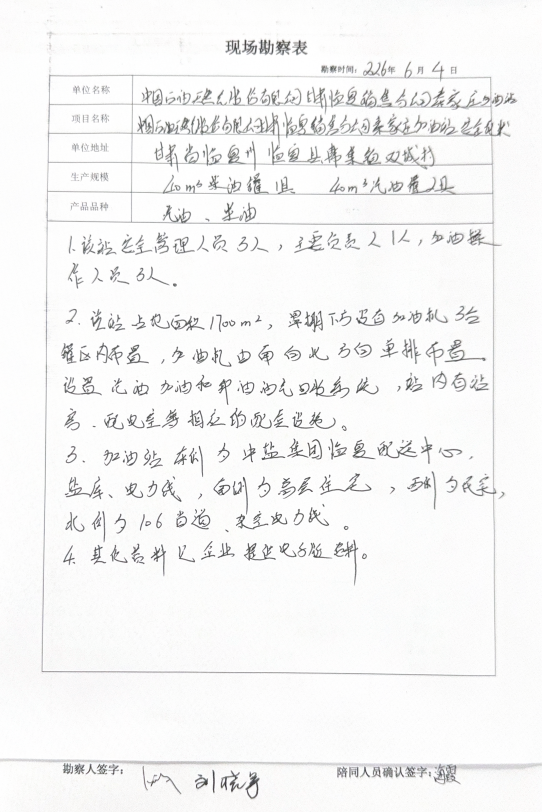 现场勘察表
勘察时间：2026年 6 月 4 日
单位名称 中国石油天然气股份有限公司甘肃临夏销售分公司秦家庄加油站
项目名称 中国石油天然气股份有限公司甘肃临夏销售分公司秦家庄加油站安全现状
单位地址 甘肃省临夏州临夏县韩集镇双城村
生产规模 40m³柴油罐1具 40m³汽油罐2具
产品品种 汽油、柴油
1.该站安全管理人员3人，主要负责人1人，加油操
作人员3人。
2.该站占地面积1700m²，罩棚下方设有加油机3台
罐区内布置，加油机由南向北方向单排布置。
设置汽油加油和卸油油气回收系统，站内有站
房、配电室等相应的配套设施。
3.加油站东侧为中盐集团临夏配送中心，
盐库、电力线，南侧为高层住宅，西侧为民宅，
北侧为106省道、架空电力线。
4.其他资料见企业提供电子版资料。
勘察人签字： 刘晓
陪同人员确认签字：海霞